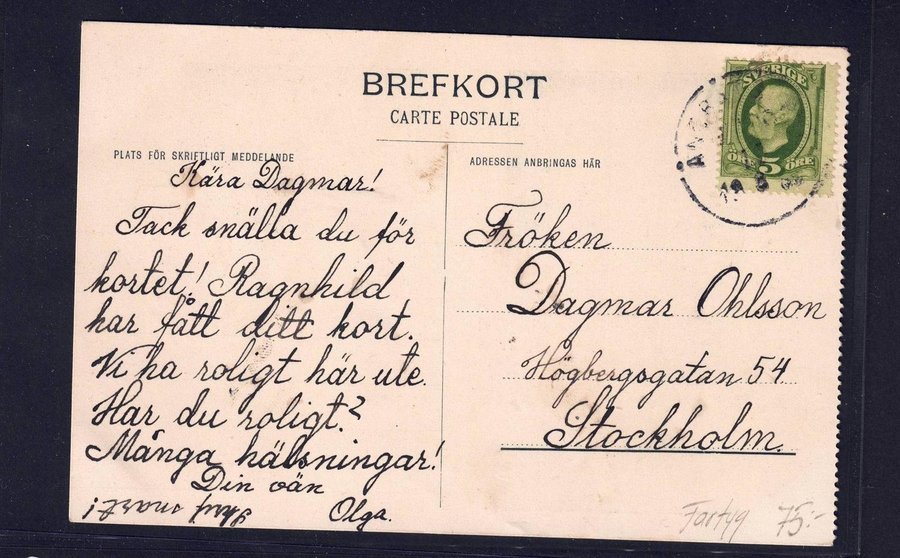 BREFKORT
CARTE POSTALE
PLATS FÖR SKRIFTLIGT MEDDELANDE
Kära Dagmar!
Tack snälla du för
kortet! Ragnhild
har fått ditt kort.
Vi ha roligt här ute.
Har du roligt?
Många hälsningar!
Din vän
Olga.
Skrif snart!
ADRESSEN ANBRINGAS HÄR
SVERIGE
ÖRE 5 ÖRE
Fröken
Dagmar Ohlsson
Högbergsgatan 54
Stockholm.
Fartyg 75:-